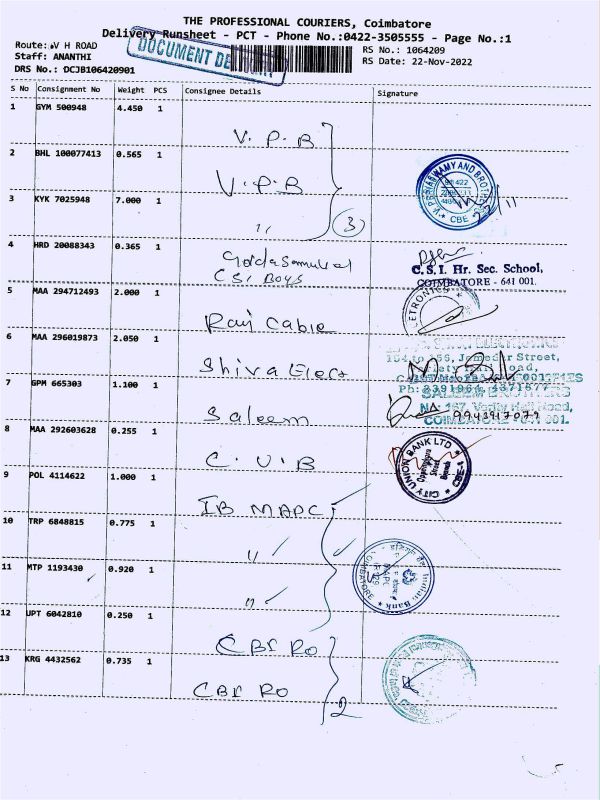 THE PROFESSIONAL COURIERS, Coimbatore
Delivery Runsheet - PCT - Phone No.:0422-3505555 - Page No.:1
Route: V H ROAD
RS No.: 1064209
Staff: ANANTHI
RS Date: 22-Nov-2022
DRS No.: DCJB106420901
DOCUMENT
S No Consignment No Weight PCS Consignee Details Signature
1 GYM 500948 4.450 1 V. P. B
2 BHL 100077413 0.565 1 V. P. B
3 KYK 7025948 7.000 1 " 3
4 HRD 20088343 0.365 1
CSI Boys
C.S.I. Hr. Sec. School,
COIMBATORE - 641 001.
5 MAA 294712493 2.000 1 Ravi Cable
6 MAA 296019873 2.050 1 Shiva Elect
7 GPM 665303 1.100 1 Saleem
SALEEM BROTHERS
8 MAA 292603628 0.255 1 C. U. B
CITY UNION BANK LTD
CBE-1
9 POL 4114622 1.000 1 IB MAPC
10 TRP 6848815 0.775 1 "
11 MTP 1193430 0.920 1 "
Indian Bank
COIMBATORE
12 UPT 6042810 0.250 1 CBI RO
13 KRG 4432562 0.735 1 CBI RO
2